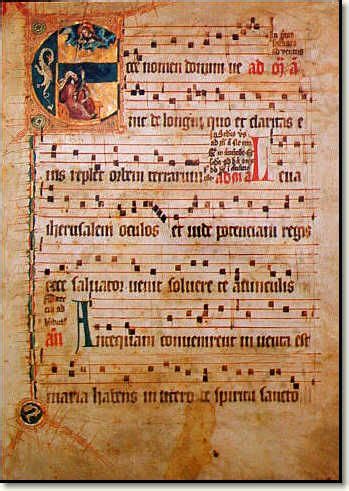 cce nomen domini ve ad
nit de longinquo et claritas e
ius replet orbem terrarum Leva
iherusalem oculos et vide potenciam regis
ecce salvator venit solvere te a vinculis
an Antequam convenirent inventa est
maria habens in utero de spiritu sancto